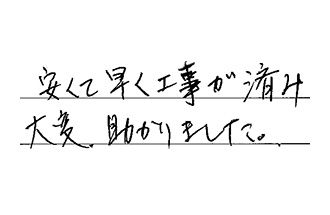 安くて早く工事が済み
大変、助かりました。